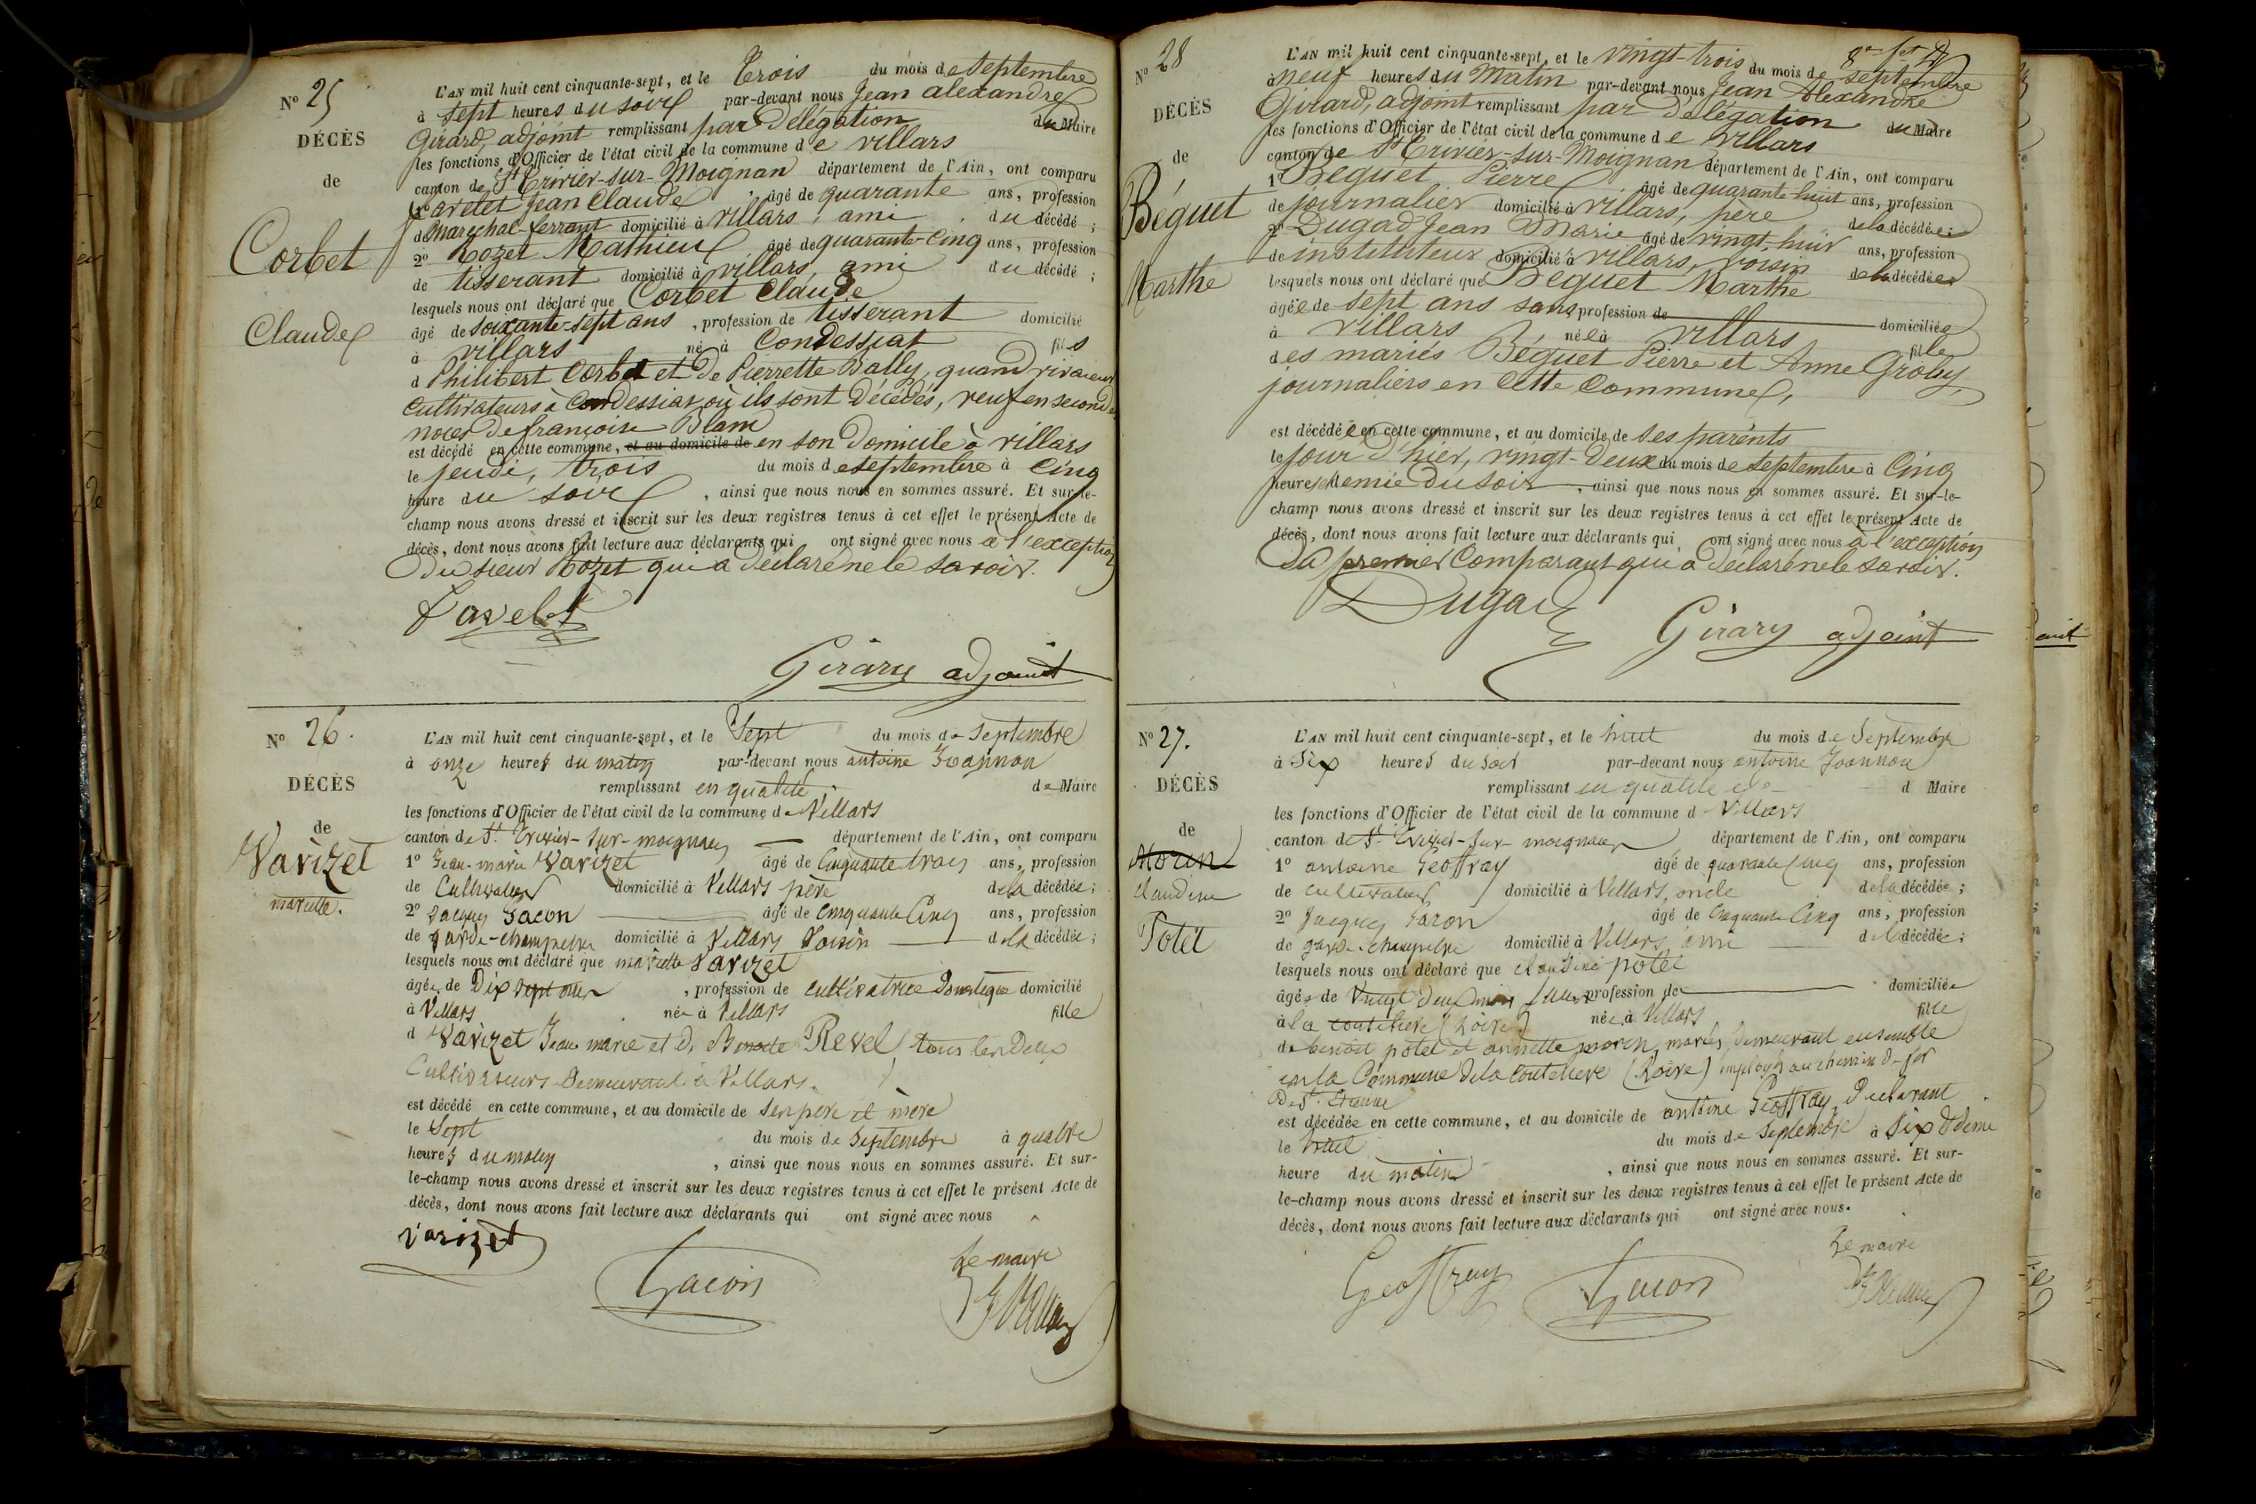 N° 25
DÉCÈS
de
Corbet
Claude
L'AN mil huit cent cinquante-sept, et le Trois du mois de septembre
à sept heures du soir par-devant nous Jean alexandre
Girard, adjoint remplissant par Délégation du Maire
les fonctions d'Officier de l'état civil de la commune de villars
canton de St Trivier-sur-Moignan département de l'Ain, ont comparu
1° Favelet Jean Claude âgé de quarante ans, profession
de marechal-ferrant domicilié à villars, ami du décédé ;
2° Rozet Mathieu âgé de quarante-cinq ans, profession
de tisserant domicilié à villars, ami du décédé ;
lesquels nous ont déclaré que Corbet Claude
âgé de soixante-sept ans, profession de tisserant domicilié
à villars né à Condessiat fils
d Philibert Corbet et de Pierrette Bally, quand vivaient
cultivateurs à Condessiat où ils sont Décédés, veuf en secondes
noces de françoise Blanc
est décédé en cette commune, et au domicile de en son Domicile à villars
le jeudi, trois du mois de septembre à cinq
heure du soir, ainsi que nous nous en sommes assuré. Et sur-le-
champ nous avons dressé et inscrit sur les deux registres tenus à cet effet le présent Acte de
décès, dont nous avons fait lecture aux déclarants qui ont signé avec nous à l'exception
du sieur Rozet qui a déclaré ne le savoir.
Favelet
Girard adjoint
N° 26.
DÉCÈS
de
Varizet
mariette.
L'AN mil huit cent cinquante-sept, et le Sept du mois de Septembre
à onze heures du matin par-devant nous antoine Joannon
remplissant en qualité de Maire
les fonctions d'Officier de l'état civil de la commune de Villars
canton de St Trivier-sur-moignan département de l'Ain, ont comparu
1° Jean-marie Varizet âgé de Cinquante trois ans, profession
de Cultivateur domicilié à Villars père de la décédée ;
2° Jacques Gacon âgé de cinquante Cinq ans, profession
de garde-champetre domicilié à Villars Voisin de la décédée ;
lesquels nous ont déclaré que mariette Varizet
âgée de Dix sept ans, profession de cultivatrice Domestique domicilié
à Villars née à Villars fille
d Varizet Jean marie et de Benoite Revel, tous les Deux
Cultivateurs Demeurant à Villars.
est décédé en cette commune, et au domicile de ses père et mère
le Sept du mois de Septembre à quatre
heures du matin, ainsi que nous nous en sommes assuré. Et sur-
le-champ nous avons dressé et inscrit sur les deux registres tenus à cet effet le présent Acte de
décès, dont nous avons fait lecture aux déclarants qui ont signé avec nous
Varizet
Gacon
Le maire
N° 28
DÉCÈS
de
Béguet
Marthe
L'AN mil huit cent cinquante-sept, et le vingt-trois du mois de septembre
à neuf heures du Matin par-devant nous Jean Alexandre
Girard, adjoint remplissant par Délégation du Maire
les fonctions d'Officier de l'état civil de la commune de villars
canton de St Trivier-sur-Moignan département de l'Ain, ont comparu
1° Béguet Pierre âgé de quarante huit ans, profession
de journalier domicilié à villars, père de la décédée ;
2° Dugad Jean Marie âgé de vingt-huit ans, profession
de instituteur domicilié à villars, voisin de la décédée
lesquels nous ont déclaré que Béguet Marthe
âgée de sept ans sans profession de domiciliée
à Villars, née à villars fille
des mariés Béguet Pierre et Anne Groby,
journaliers en cette commune,
est décédée en cette commune, et au domicile de ses parents
le jour d'hier, vingt-deux du mois de septembre à cinq
heures et demie du soir, ainsi que nous nous en sommes assuré. Et sur-le-
champ nous avons dressé et inscrit sur les deux registres tenus à cet effet le présent Acte de
décès, dont nous avons fait lecture aux déclarants qui ont signé avec nous à l'exception
du premier Comparant qui a déclaré ne le savoir.
Dugad
Girard adjoint
N° 27.
DÉCÈS
de
Morin
Claudine
Potet
L'AN mil huit cent cinquante-sept, et le huit du mois de Septembre
à Six heures du soir par-devant nous antoine Joannon
remplissant en qualité de d Maire
les fonctions d'Officier de l'état civil de la commune d Villars
canton de St Trivier-sur-moignan département de l'Ain, ont comparu
1° antoine Geoffray âgé de quarante Cinq ans, profession
de cultivateur domicilié à Villars, oncle de la décédée ;
2° Jacques Gacon âgé de Cinquante Cinq ans, profession
de garde champetre domicilié à Villars, ami de la décédée ;
lesquels nous ont déclaré que claudine potet
âgée de Vingt deux mois sans profession de domiciliée
à la couteliere (Loire) née à Villars fille
de benoit potet et annette morin, mariés, demeurant ensemble
en la Commune de la Couteliere (Loire) employés au chemin de fer
De St. Etienne
est décédée en cette commune, et au domicile de antoine Geoffray, Déclarant
le huit du mois de Septembre à Six & demie
heure du matin, ainsi que nous nous en sommes assuré. Et sur-
le-champ nous avons dressé et inscrit sur les deux registres tenus à cet effet le présent Acte de
décès, dont nous avons fait lecture aux déclarants qui ont signé avec nous.
Geoffray
Gacon
Le maire